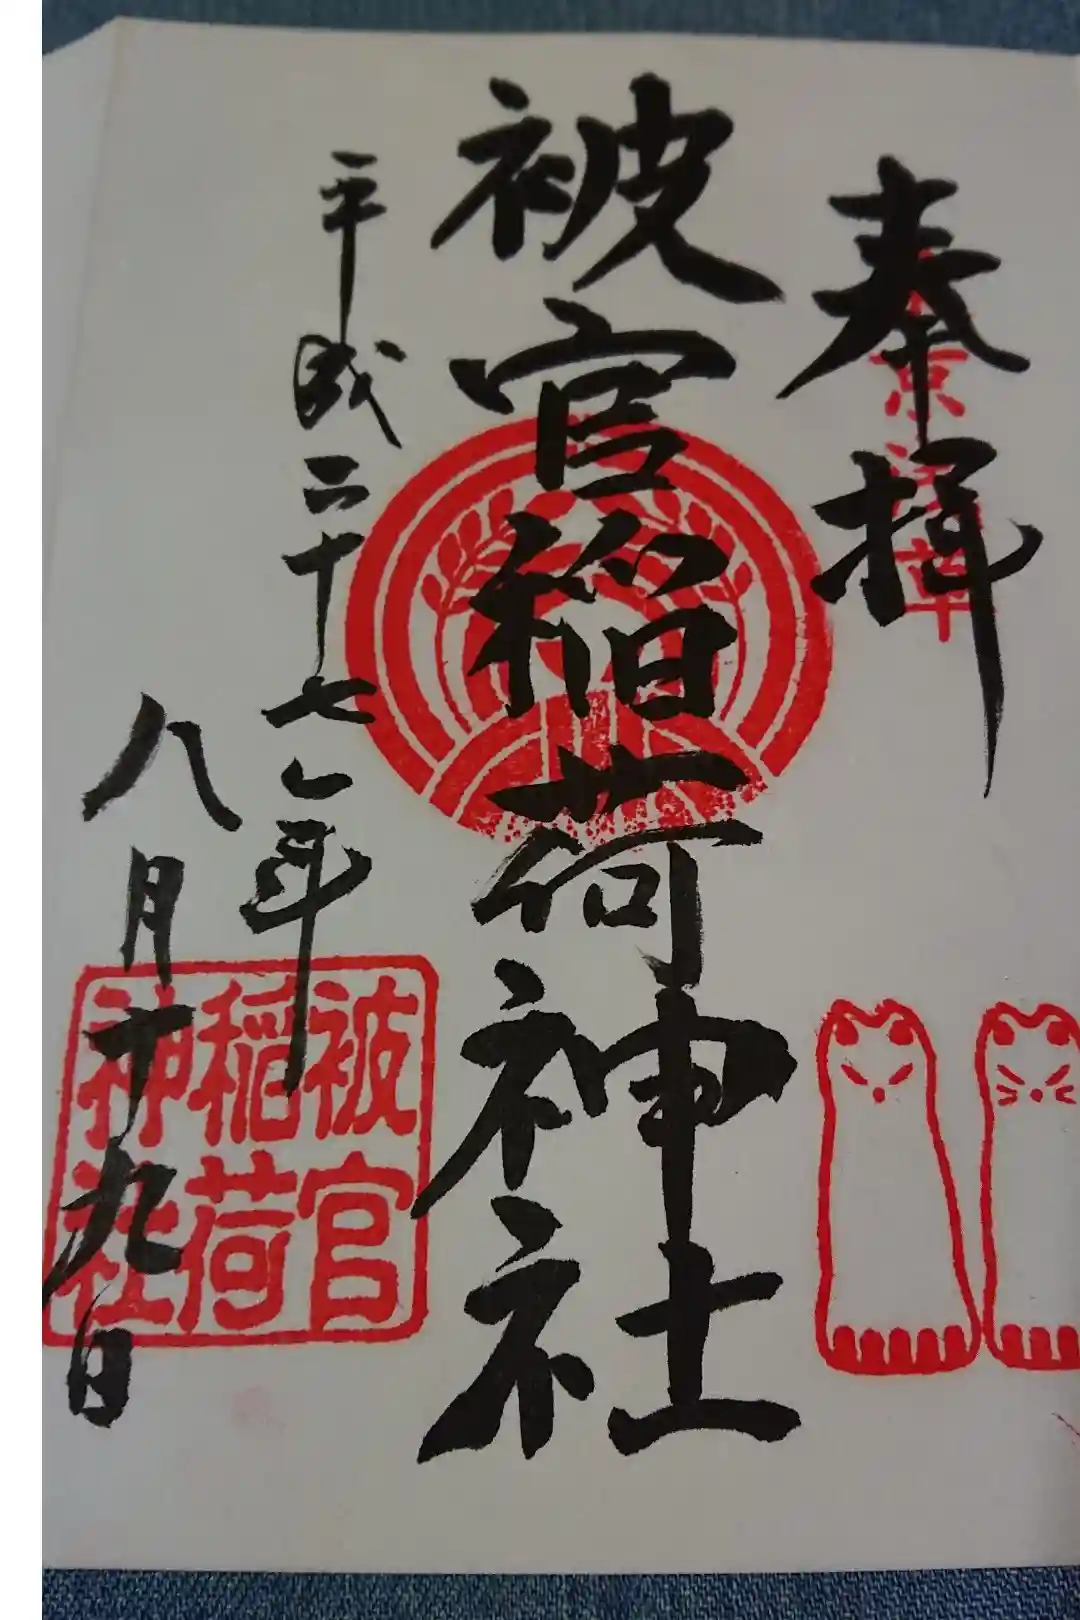 奉拝
京 草
被官稲荷神社
平成二十七年
八月十九日
被官
稲荷
神社